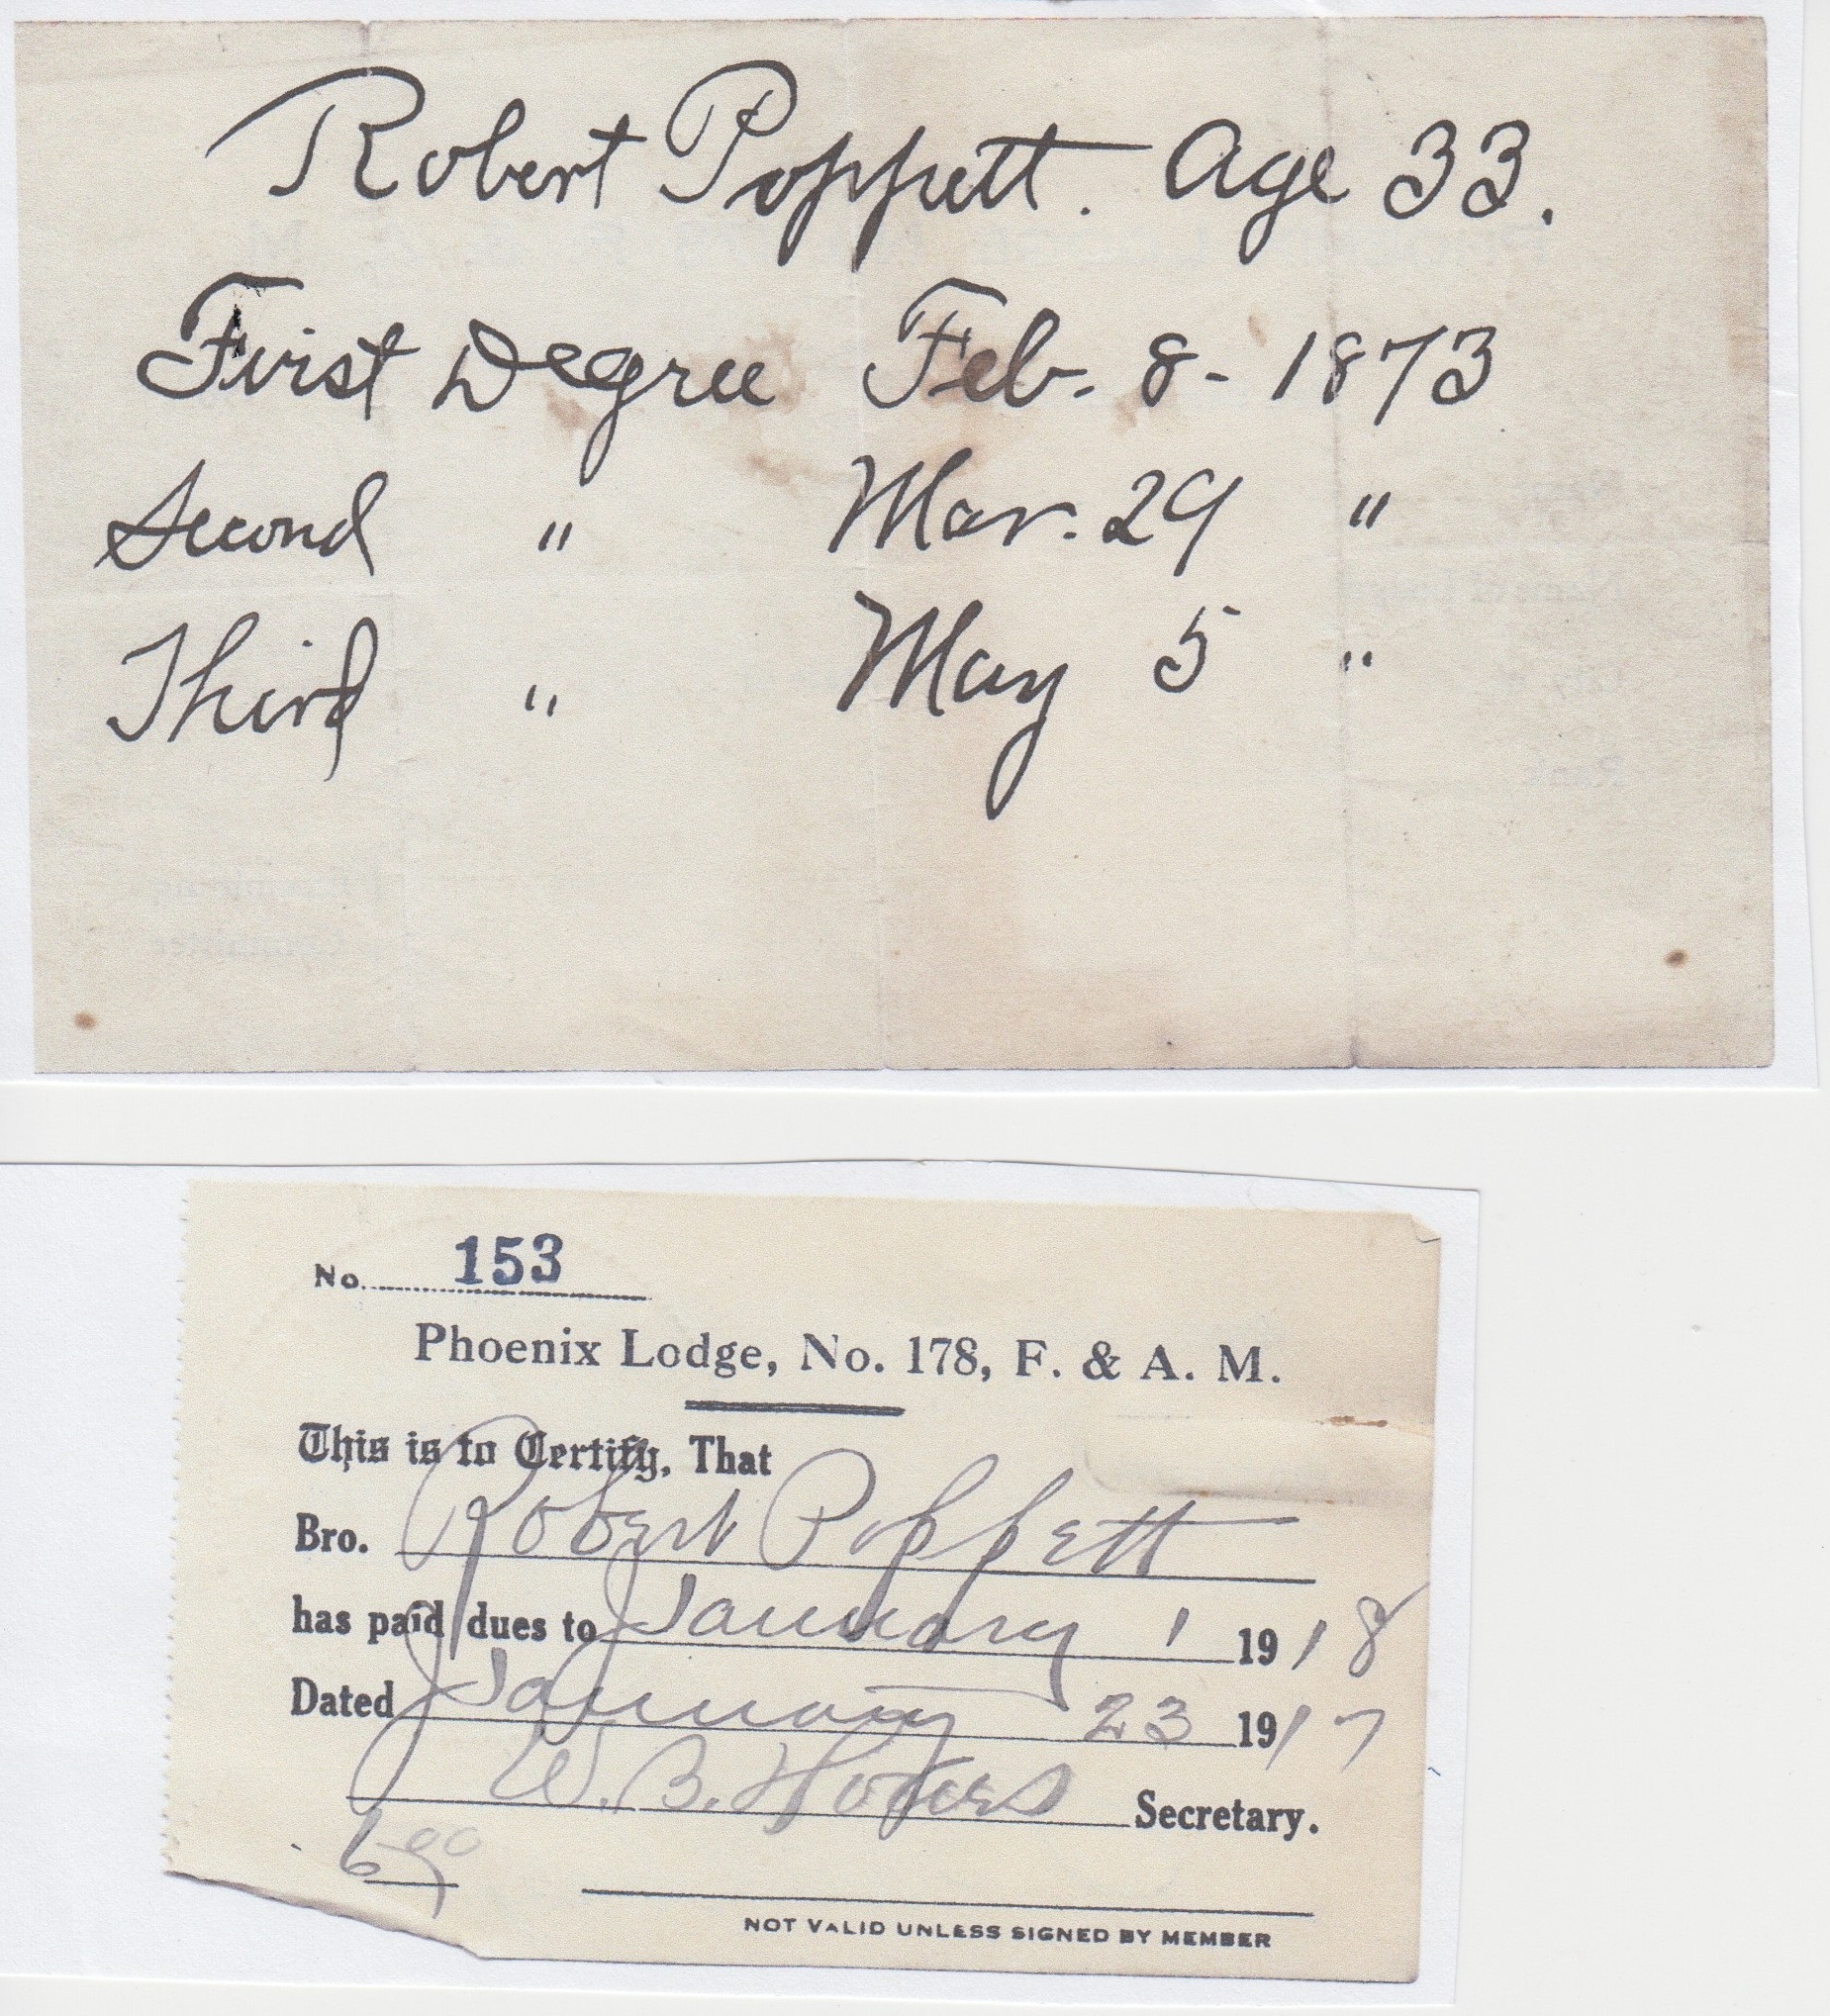 Robert Poppett. Age 33.
First Degree Feb. 8 - 1873
Second " Mar. 29 "
Third " May 5 "
No. 153
Phoenix Lodge, No. 178, F. & A. M.
This is to Certify, That
Bro. Robert Poppett
has paid dues to January 1 1918
Dated January 23 1917
W. B. Secretary.
NOT VALID UNLESS SIGNED BY MEMBER